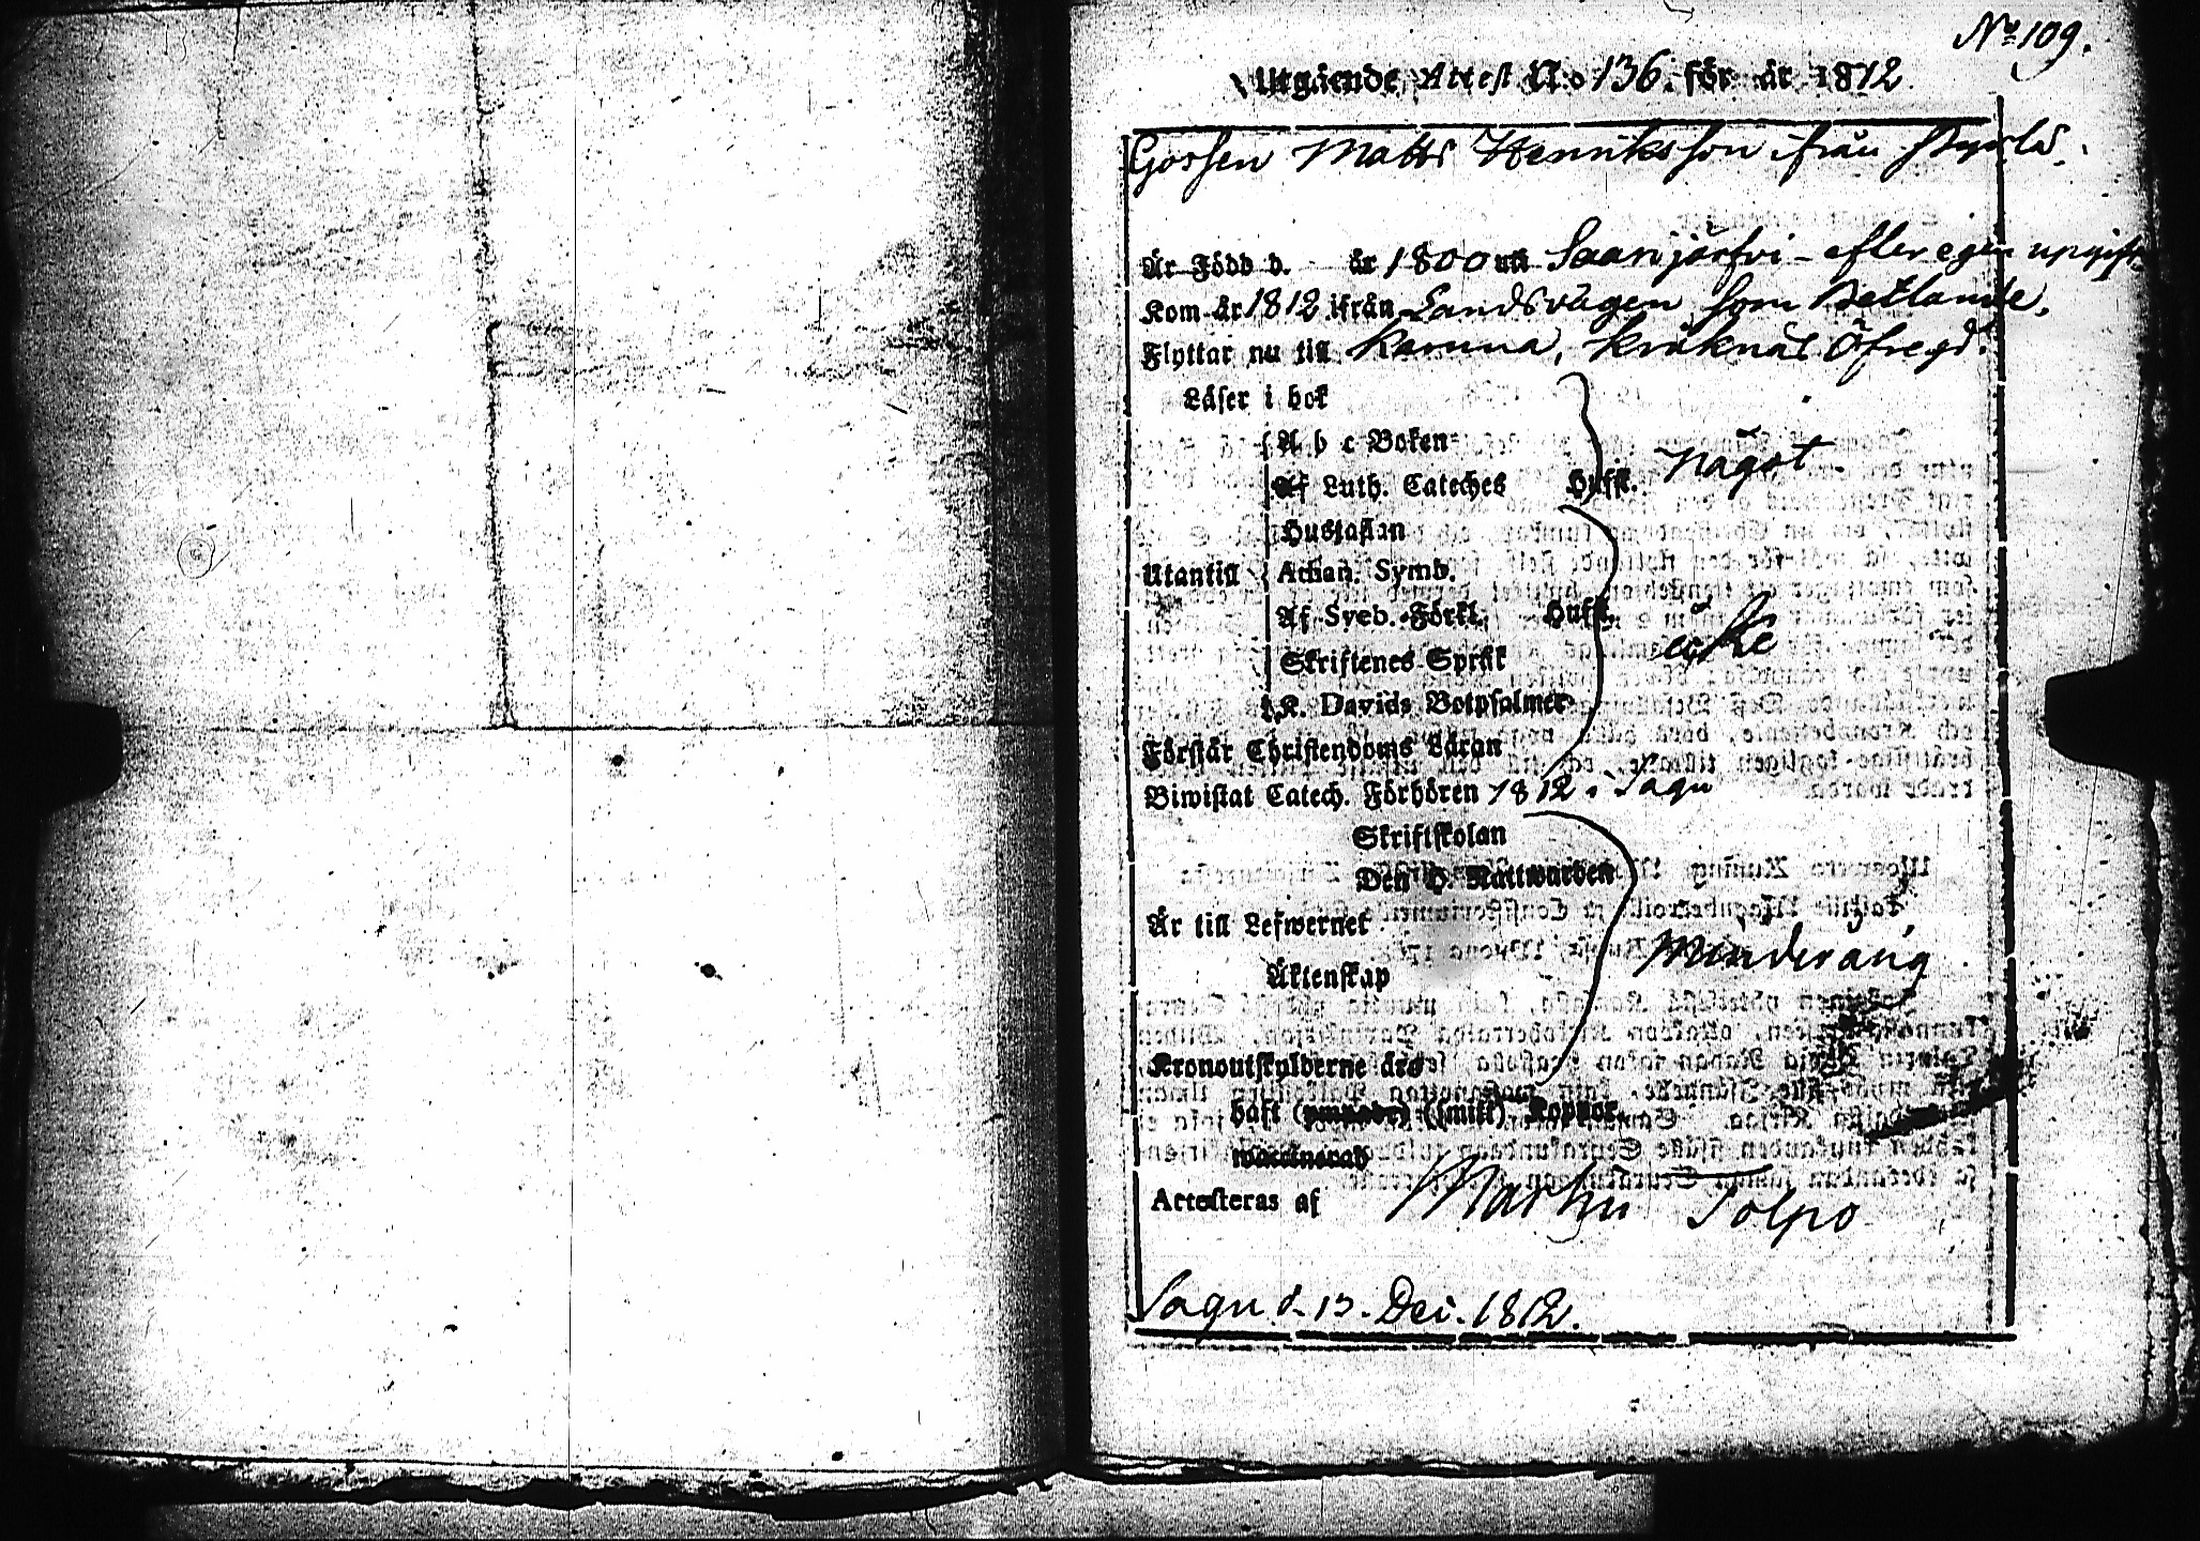 No 109.
Utgående Attest N:o 136. för år 1812
Gossen Matts Henriksson ifrån
Är Född d. år 1800 uti Saarijärfvi - efter egen upgift
Kom år 1812 ifrån Landsvägen som Betlande.
Flyttar nu till Karuna, Kråknäs Öfregd.
Läser i bok
A b c Boken
Af Luth. Cateches Hufst. något.
Hustaflan
Utantill Athan. Symb.
Af Sveb. Förkl. Hufst.
Skriftenes Språk icke
K. Davids Botpsalmer
Förstår Christendoms Läran
Biwistat Catech. Förhören 1812 i Sagu
Skriftskolan
Den H. Nattwarden
Är till Lefwernet
Minderårig
Äktenskap
Kronoutskylderne äro
haft (ympade) (smitt) Koppor
waccinerad
Attesteras af Martin Tolpo
Sagu d. 13. Dec. 1812.